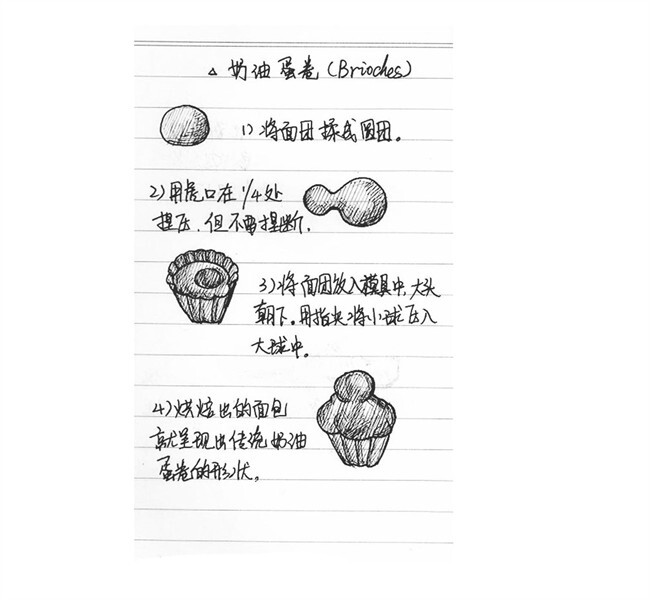 △ 奶油蛋卷(Brioches)
1)将面团揉成圆团。
2)用虎口在1/4处
捏压,但不要捏断。
3)将面团放入模具中,大头
朝下。用指尖将小球压入
大球中。
4)烘焙出的面包
就呈现出传统奶油
蛋卷的形状。